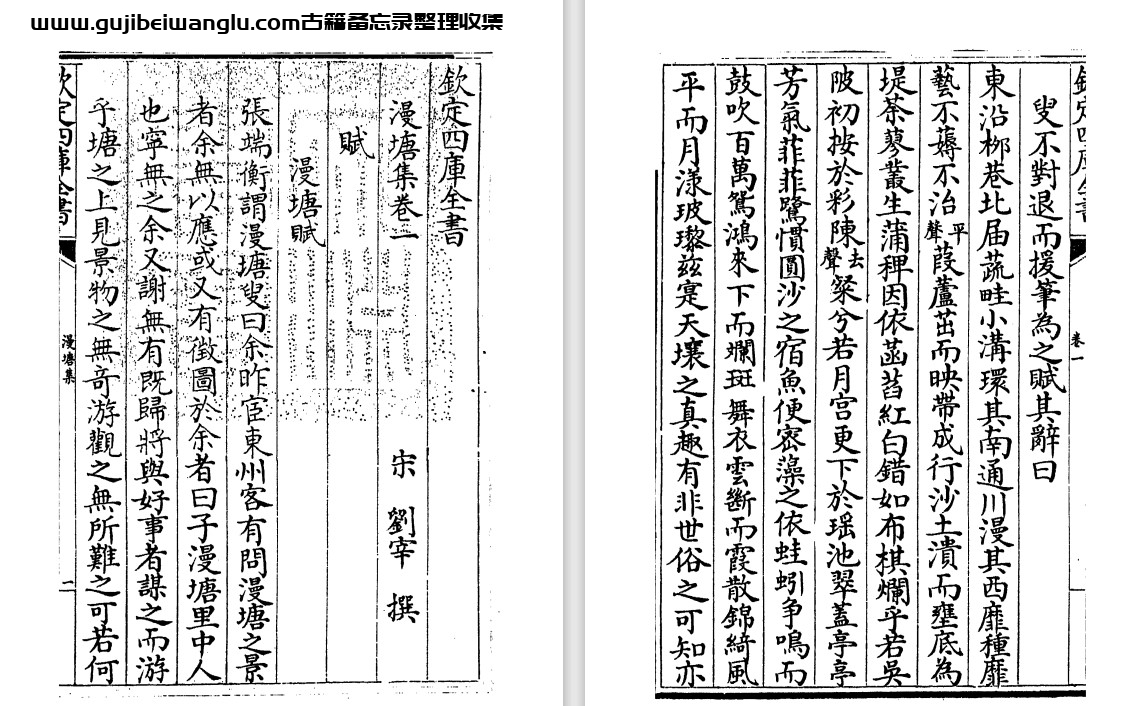 www.gujibeiwanglu.com古籍备忘录整理收集
欽定四庫全書
漫塘集卷一
宋 劉宰 撰
賦
漫塘賦
張端衡謂漫塘叟曰余昨宦東州客有問漫塘之景
者余無以應或又有徴圖於余者曰子漫塘里中人
也寧無之余又謝無有既歸將與好事者謀之而游
乎塘之上見景物之無竒游觀之無所難之可若何
欽定四庫全書
漫塘集
二
欽定四庫全書
卷一
叟不對退而援筆為之賦其辭曰
東沿柳巷北届蔬畦小溝環其南通川漫其西靡種靡
藝不薅不治平聲葭蘆茁而映帶成行沙土潰而壅底為
堤荼蓼叢生蒲稗因依菡萏紅白錯如布棋爛乎若吳
陂初按於彩陳去聲粲兮若月宫更下於瑶池翠蓋亭亭
芳氣菲菲鷺慣圓沙之宿魚便密藻之依蛙蚓争鳴而
鼓吹百萬鴛鴻來下而斕斑舞衣雲斷而霞散錦綺風
平而月漾玻瓈兹寔天壤之真趣有非世俗之可知亦